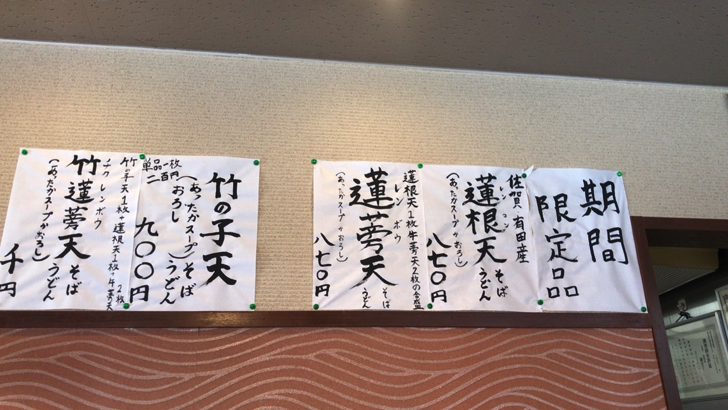 期間
限定品
佐賀、有田産
レンコン
蓮根天そばうどん
(あったかスープかおろし)
八七〇円
蓮根天1枚牛蒡天2枚の合盛
レンボウ
蓮蒡天そばうどん
(あったかスープかおろし)
八七〇円
単品一枚
二百円
竹の子天
(あったかスープ)そば
(おろし)うどん
九〇〇円
竹の子天1枚+蓮根天1枚+牛蒡天2枚
チクレンボウ
竹蓮蒡天そばうどん
(あったかスープかおろし)
千円